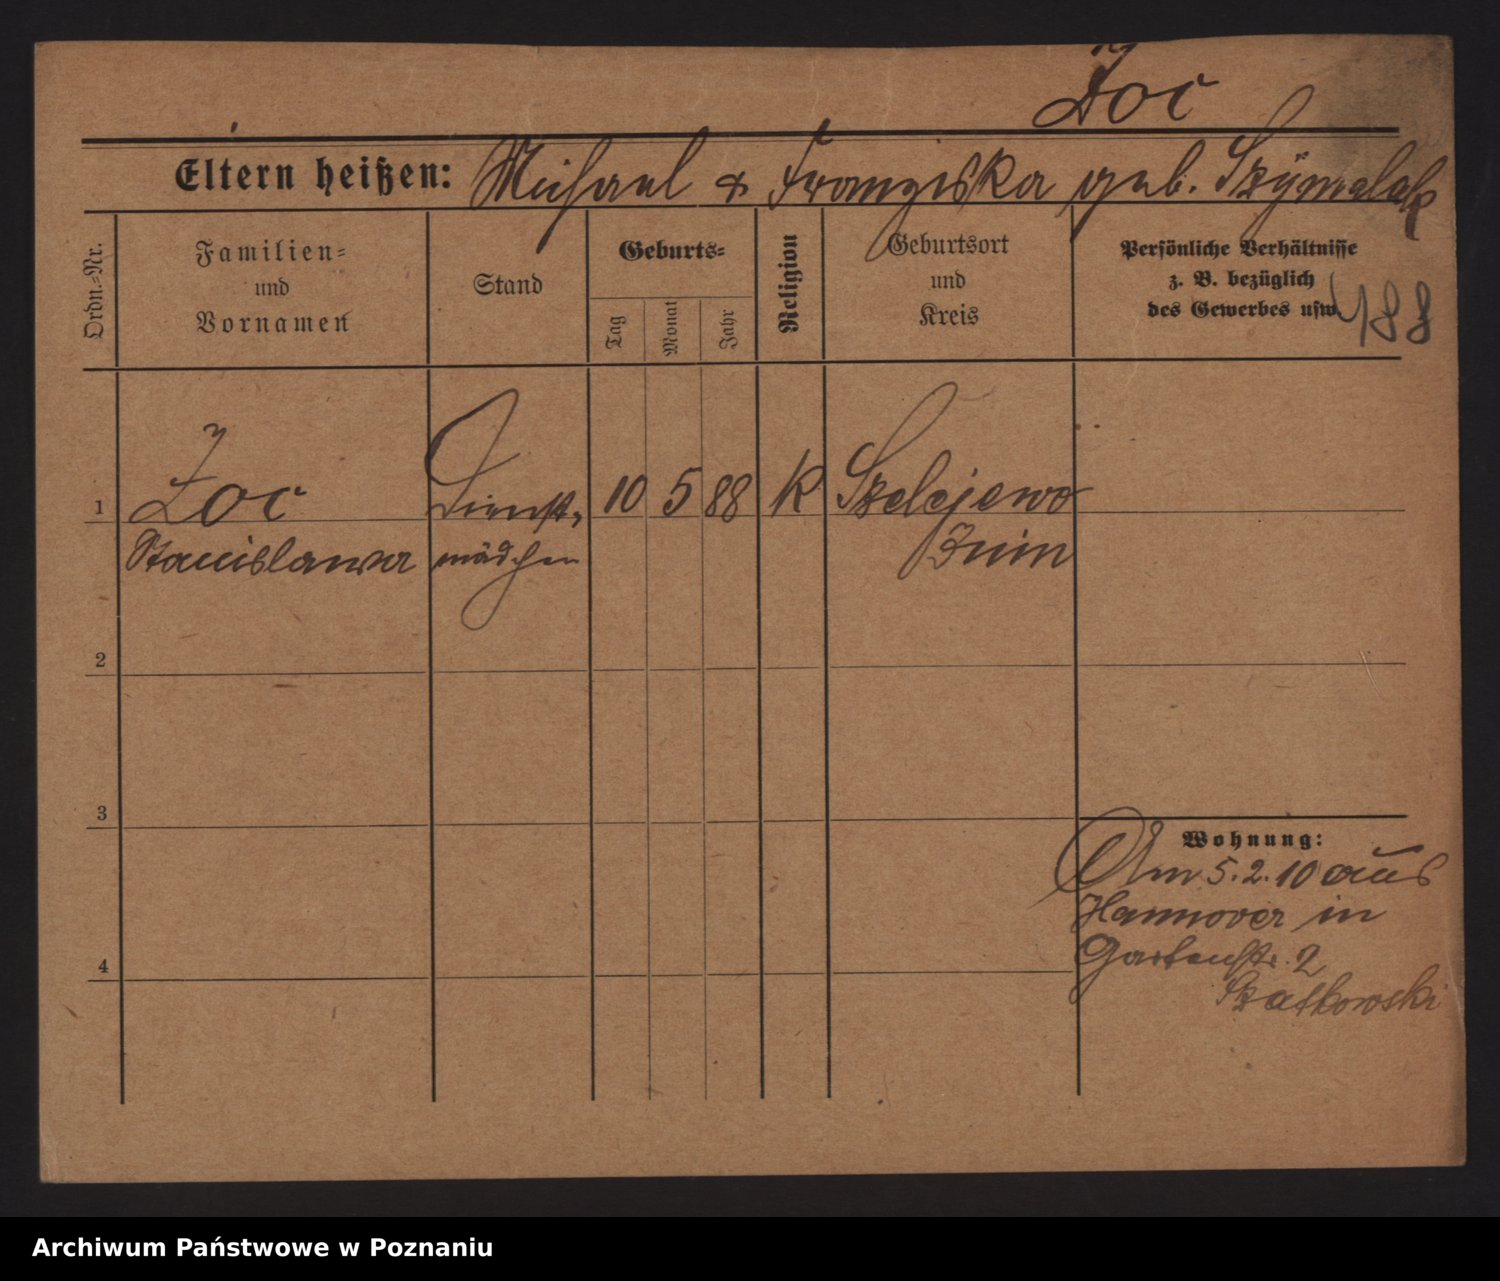 Żoc
Eltern heißen: Michael & Franziska geb. Szÿmalak
Ordn.-Nr.
Familien-
und
Vornamen
Stand
Geburts-
Tag
Monat
Jahr
Religion
Geburtsort
und
Kreis
Persönliche Verhältnisse
z. B. bezüglich
des Gewerbes usw.
188
1 Żoc Dienst- 10 5 88 K Szelejewo
Stanislawa mädchen Znin
2
3
4
Wohnung:
Am 5. 2. 10 aus
Hannover in
Gartenstr. 2
Szatkowski
Archiwum Państwowe w Poznaniu